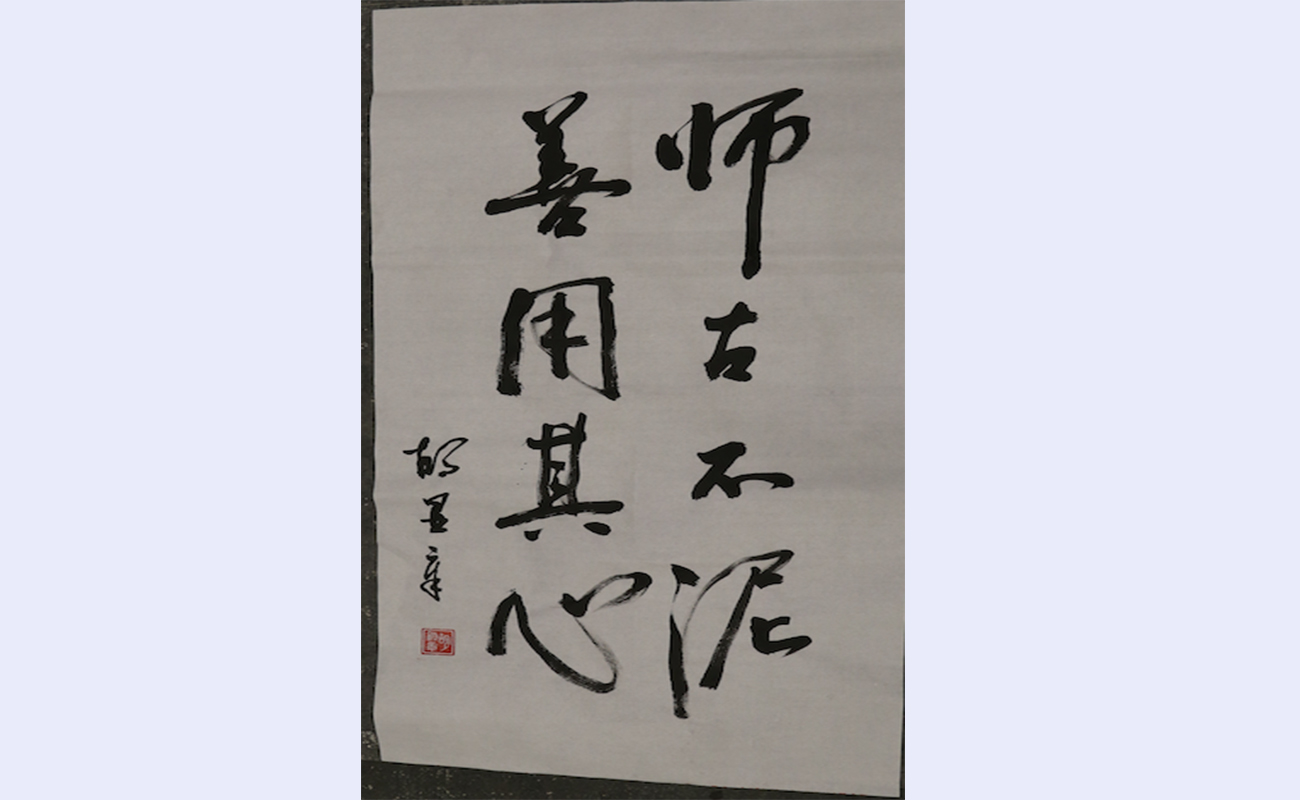 师古不泥
善用其心
胡